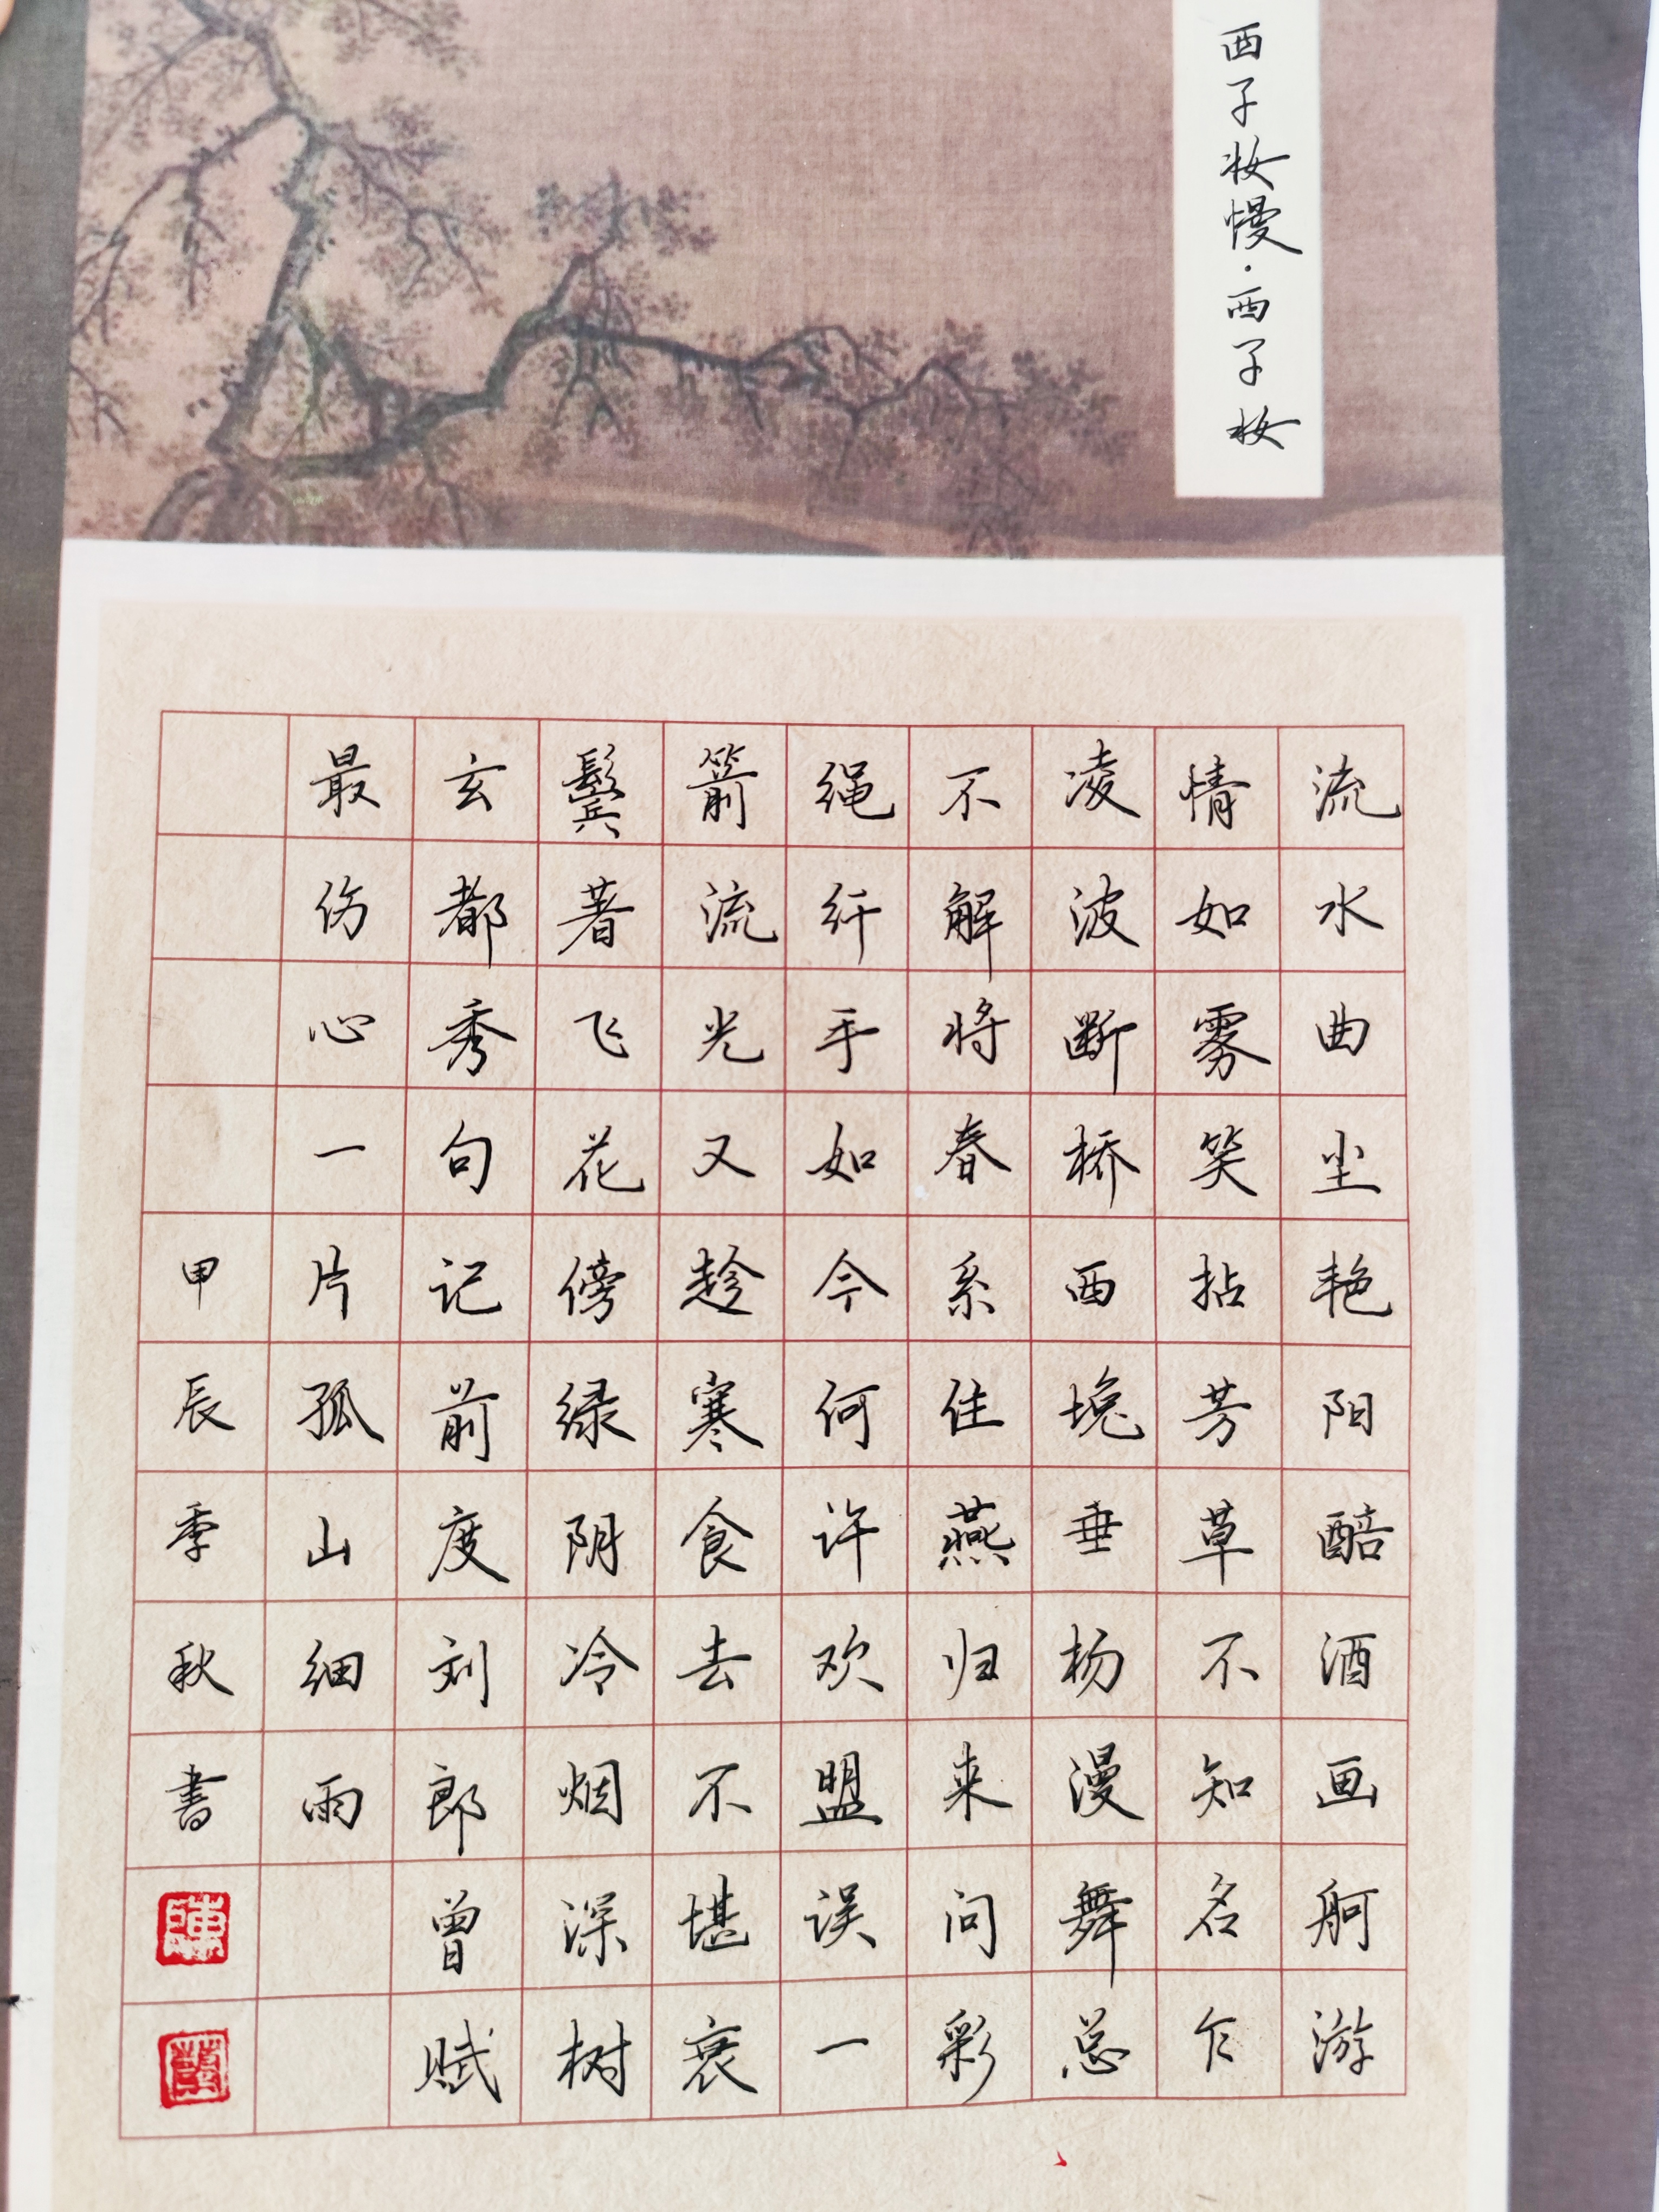 西子妆慢·西子妆
流水曲尘艳阳醅酒画舸游
情如雾笑拈芳草不知名乍
凌波断桥西堍垂杨漫舞总
不解将春系住燕归来问彩
绳纤手如今何许欢盟误一
箭流光又趁寒食去不堪衰
鬓著飞花傍绿阴冷烟深树
玄都秀句记前度刘郎曾赋
最伤心一片孤山细雨
甲辰季秋书
陳